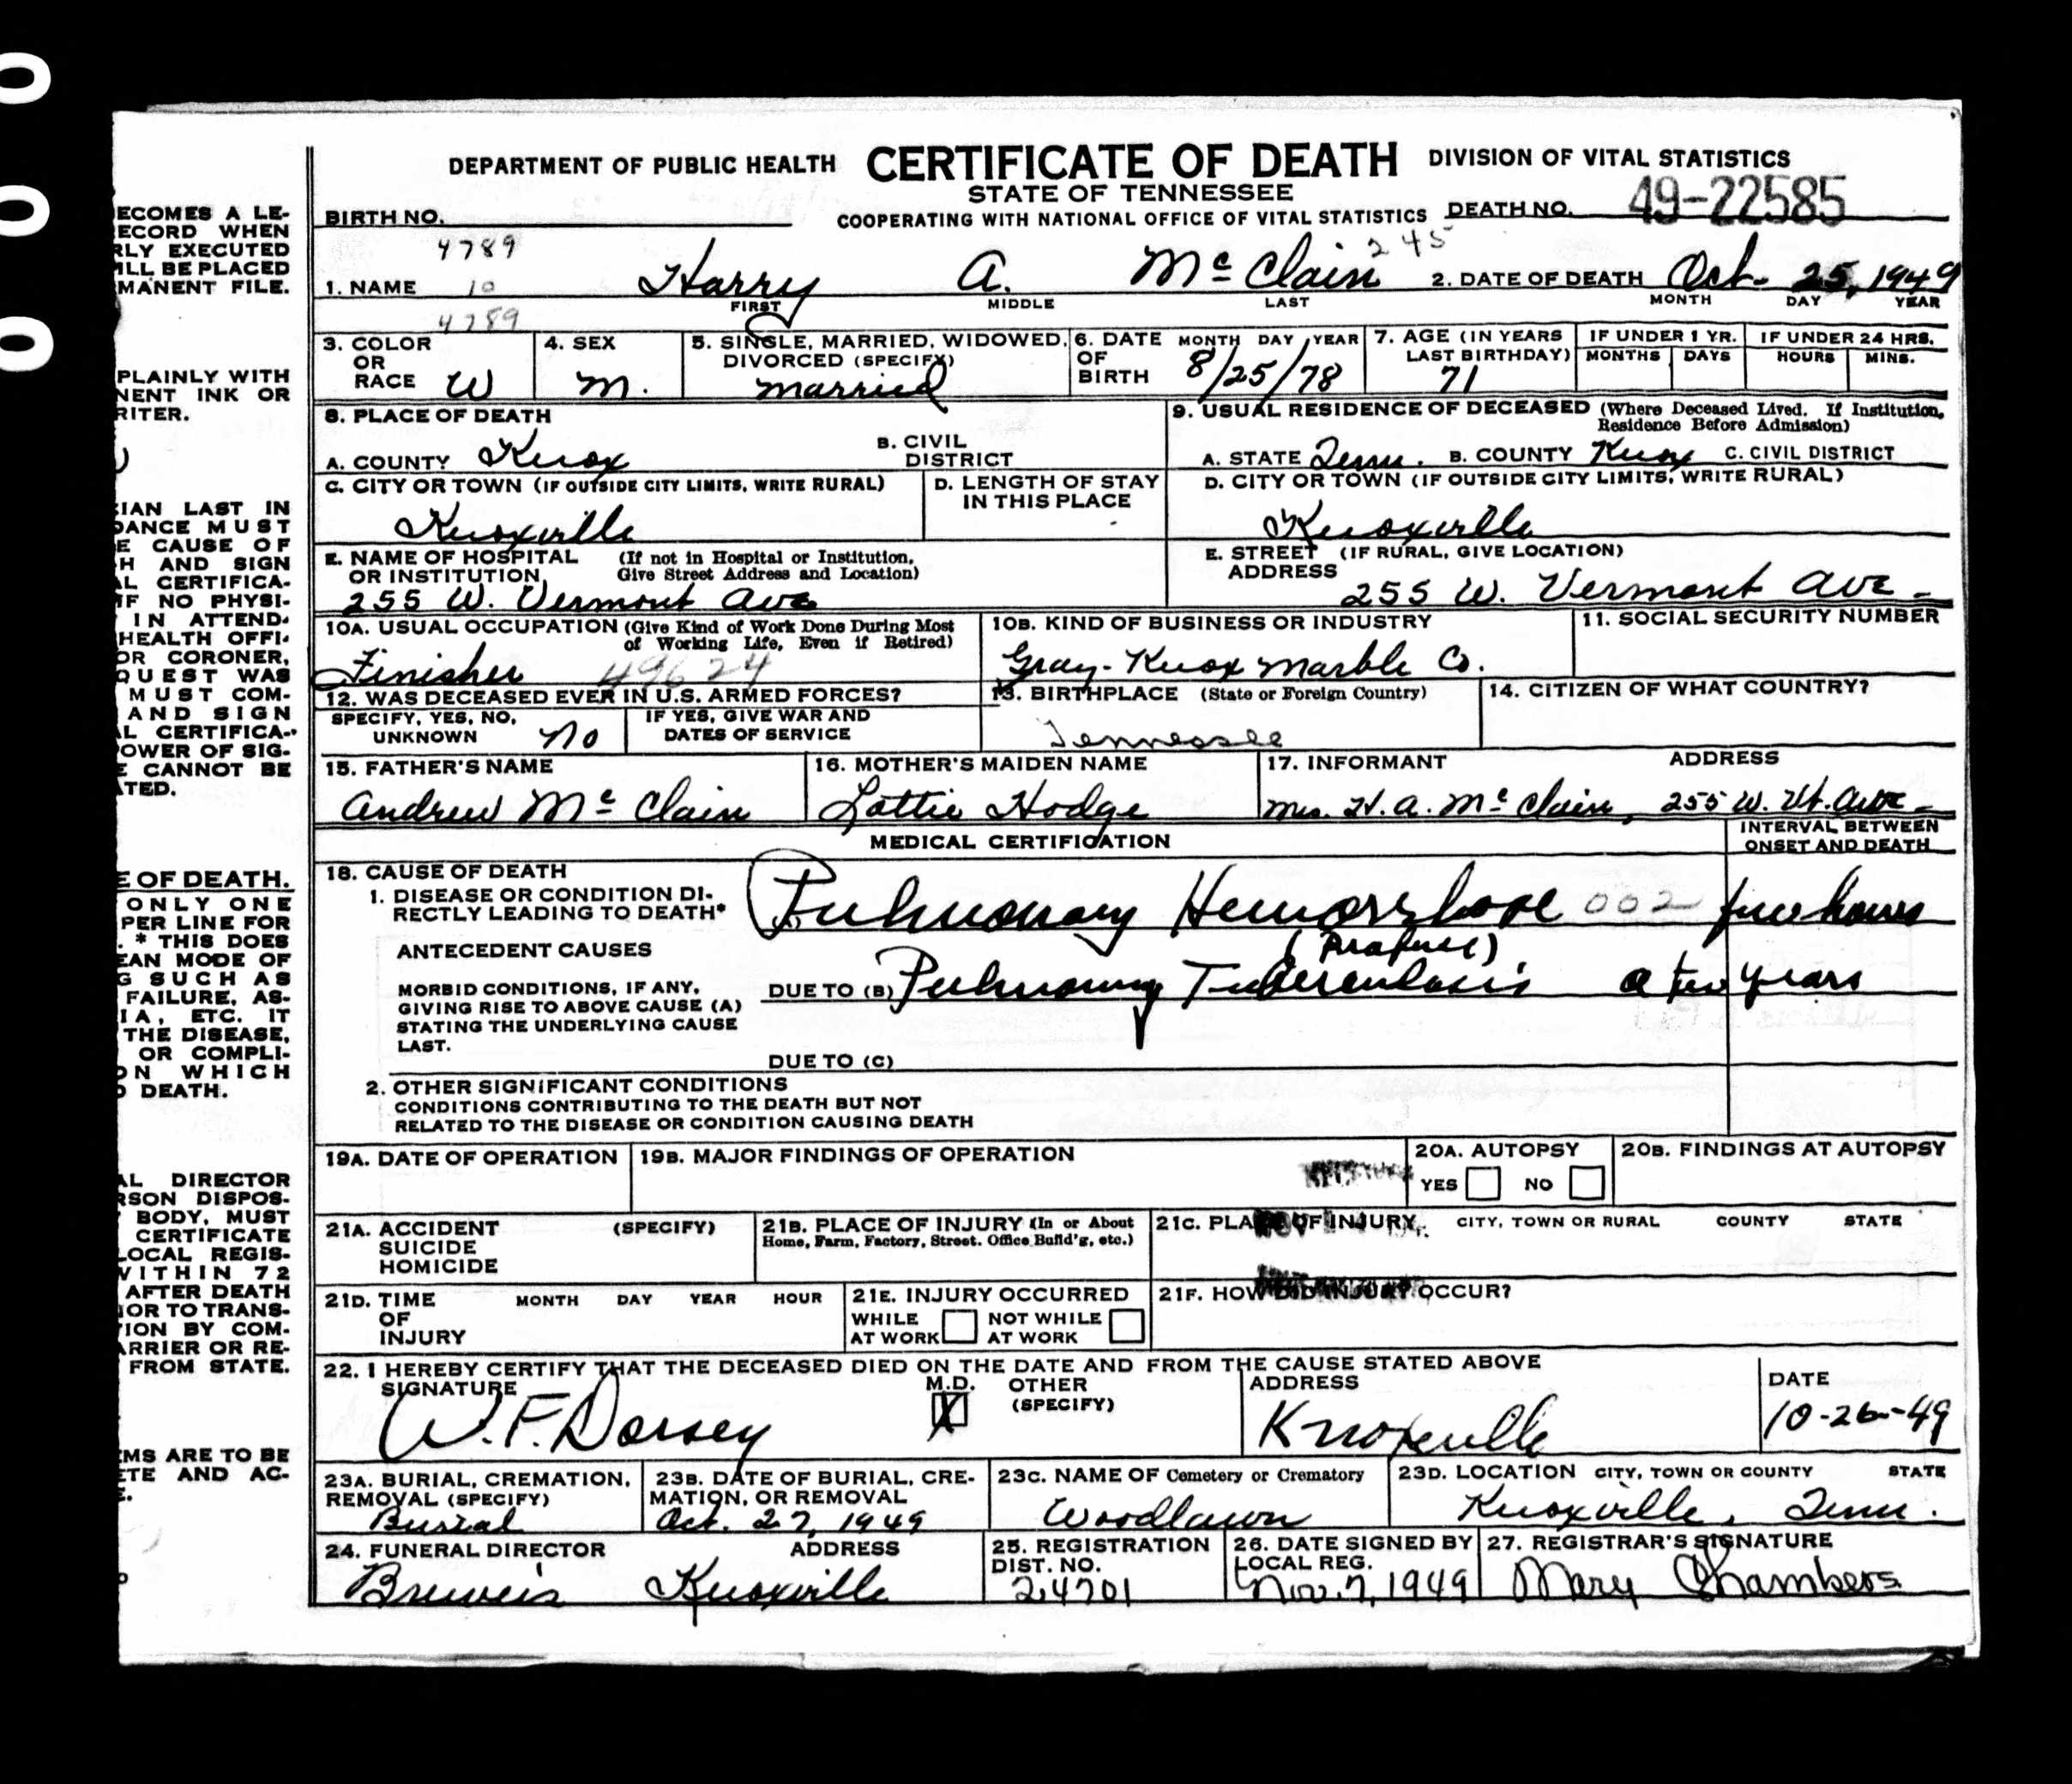 DEPARTMENT OF PUBLIC HEALTH CERTIFICATE OF DEATH DIVISION OF VITAL STATISTICS
STATE OF TENNESSEE
BIRTH NO. COOPERATING WITH NATIONAL OFFICE OF VITAL STATISTICS DEATH NO. 49-22585
4789
1. NAME 10 Harry A. Mc Clain 245 2. DATE OF DEATH Oct. 25, 1949
FIRST MIDDLE LAST MONTH DAY YEAR
4789
3. COLOR OR RACE W
4. SEX M.
5. SINGLE, MARRIED, WIDOWED, DIVORCED (SPECIFY) married
6. DATE OF BIRTH MONTH DAY YEAR 8/25/78
7. AGE (IN YEARS LAST BIRTHDAY) 71
IF UNDER 1 YR. MONTHS DAYS
IF UNDER 24 HRS. HOURS MINS.
8. PLACE OF DEATH
A. COUNTY Knox B. CIVIL DISTRICT
9. USUAL RESIDENCE OF DECEASED (Where Deceased Lived. If Institution, Residence Before Admission)
A. STATE Tenn. B. COUNTY Knox C. CIVIL DISTRICT
C. CITY OR TOWN (IF OUTSIDE CITY LIMITS, WRITE RURAL) Knoxville
D. LENGTH OF STAY IN THIS PLACE
D. CITY OR TOWN (IF OUTSIDE CITY LIMITS, WRITE RURAL) Knoxville
E. NAME OF HOSPITAL OR INSTITUTION (If not in Hospital or Institution, Give Street Address and Location)
255 W. Vermont Ave
E. STREET ADDRESS (IF RURAL, GIVE LOCATION)
255 W. Vermont Ave -
10A. USUAL OCCUPATION (Give Kind of Work Done During Most of Working Life, Even if Retired)
Finisher 49624
10B. KIND OF BUSINESS OR INDUSTRY
Gray-Knox Marble Co.
11. SOCIAL SECURITY NUMBER
12. WAS DECEASED EVER IN U.S. ARMED FORCES?
SPECIFY, YES, NO, UNKNOWN no
IF YES, GIVE WAR AND DATES OF SERVICE
13. BIRTHPLACE (State or Foreign Country)
Tennessee
14. CITIZEN OF WHAT COUNTRY?
15. FATHER'S NAME
Andrew Mc Clain
16. MOTHER'S MAIDEN NAME
Lottie Hodge
17. INFORMANT ADDRESS
Mrs. H. A. Mc Clain, 255 W. Vt. Ave -
MEDICAL CERTIFICATION
INTERVAL BETWEEN ONSET AND DEATH
18. CAUSE OF DEATH
1. DISEASE OR CONDITION DIRECTLY LEADING TO DEATH* Pulmonary Hemorrhage 002 few hours
(Profuse)
ANTECEDENT CAUSES
MORBID CONDITIONS, IF ANY, GIVING RISE TO ABOVE CAUSE (A) STATING THE UNDERLYING CAUSE LAST.
DUE TO (B) Pulmonary Tuberculosis a few years
DUE TO (C)
2. OTHER SIGNIFICANT CONDITIONS
CONDITIONS CONTRIBUTING TO THE DEATH BUT NOT
RELATED TO THE DISEASE OR CONDITION CAUSING DEATH
19A. DATE OF OPERATION
19B. MAJOR FINDINGS OF OPERATION
20A. AUTOPSY YES NO
20B. FINDINGS AT AUTOPSY
21A. ACCIDENT SUICIDE HOMICIDE (SPECIFY)
21B. PLACE OF INJURY (In or About Home, Farm, Factory, Street, Office Build'g, etc.)
21C. PLACE OF INJURY, CITY, TOWN OR RURAL COUNTY STATE
21D. TIME OF INJURY MONTH DAY YEAR HOUR
21E. INJURY OCCURRED
WHILE AT WORK NOT WHILE AT WORK
21F. HOW DID INJURY OCCUR?
22. I HEREBY CERTIFY THAT THE DECEASED DIED ON THE DATE AND FROM THE CAUSE STATED ABOVE
SIGNATURE W. F. Dorsey M.D. X OTHER (SPECIFY)
ADDRESS Knoxville
DATE 10-26-49
23A. BURIAL, CREMATION, REMOVAL (SPECIFY) Burial
23B. DATE OF BURIAL, CREMATION, OR REMOVAL Oct. 27, 1949
23C. NAME OF Cemetery or Crematory Woodlawn
23D. LOCATION CITY, TOWN OR COUNTY STATE Knoxville, Tenn.
24. FUNERAL DIRECTOR ADDRESS
Knoxville
25. REGISTRATION DIST. NO. 24701
26. DATE SIGNED BY LOCAL REG. Nov. 7, 1949
27. REGISTRAR'S SIGNATURE Mary Chambers
ECOMES A LE-
ECORD WHEN
RLY EXECUTED
ILL BE PLACED
MANENT FILE.
PLAINLY WITH
NENT INK OR
RITER.
CIAN LAST IN
DANCE MUST
E CAUSE OF
H AND SIGN
AL CERTIFICA-
IF NO PHYSI-
IN ATTEND-
HEALTH OFFI-
OR CORONER,
QUEST WAS
MUST COM-
AND SIGN
AL CERTIFICA-
POWER OF SIG-
E CANNOT BE
ATED.
E OF DEATH.
ONLY ONE
PER LINE FOR
. * THIS DOES
EAN MODE OF
G SUCH AS
FAILURE, AS-
IA, ETC. IT
THE DISEASE,
OR COMPLI-
ON WHICH
D DEATH.
AL DIRECTOR
RSON DISPOS-
BODY, MUST
CERTIFICATE
LOCAL REGIS-
WITHIN 72
AFTER DEATH
IOR TO TRANS-
TION BY COM-
ARRIER OR RE-
FROM STATE.
EMS ARE TO BE
ETE AND AC-
E.